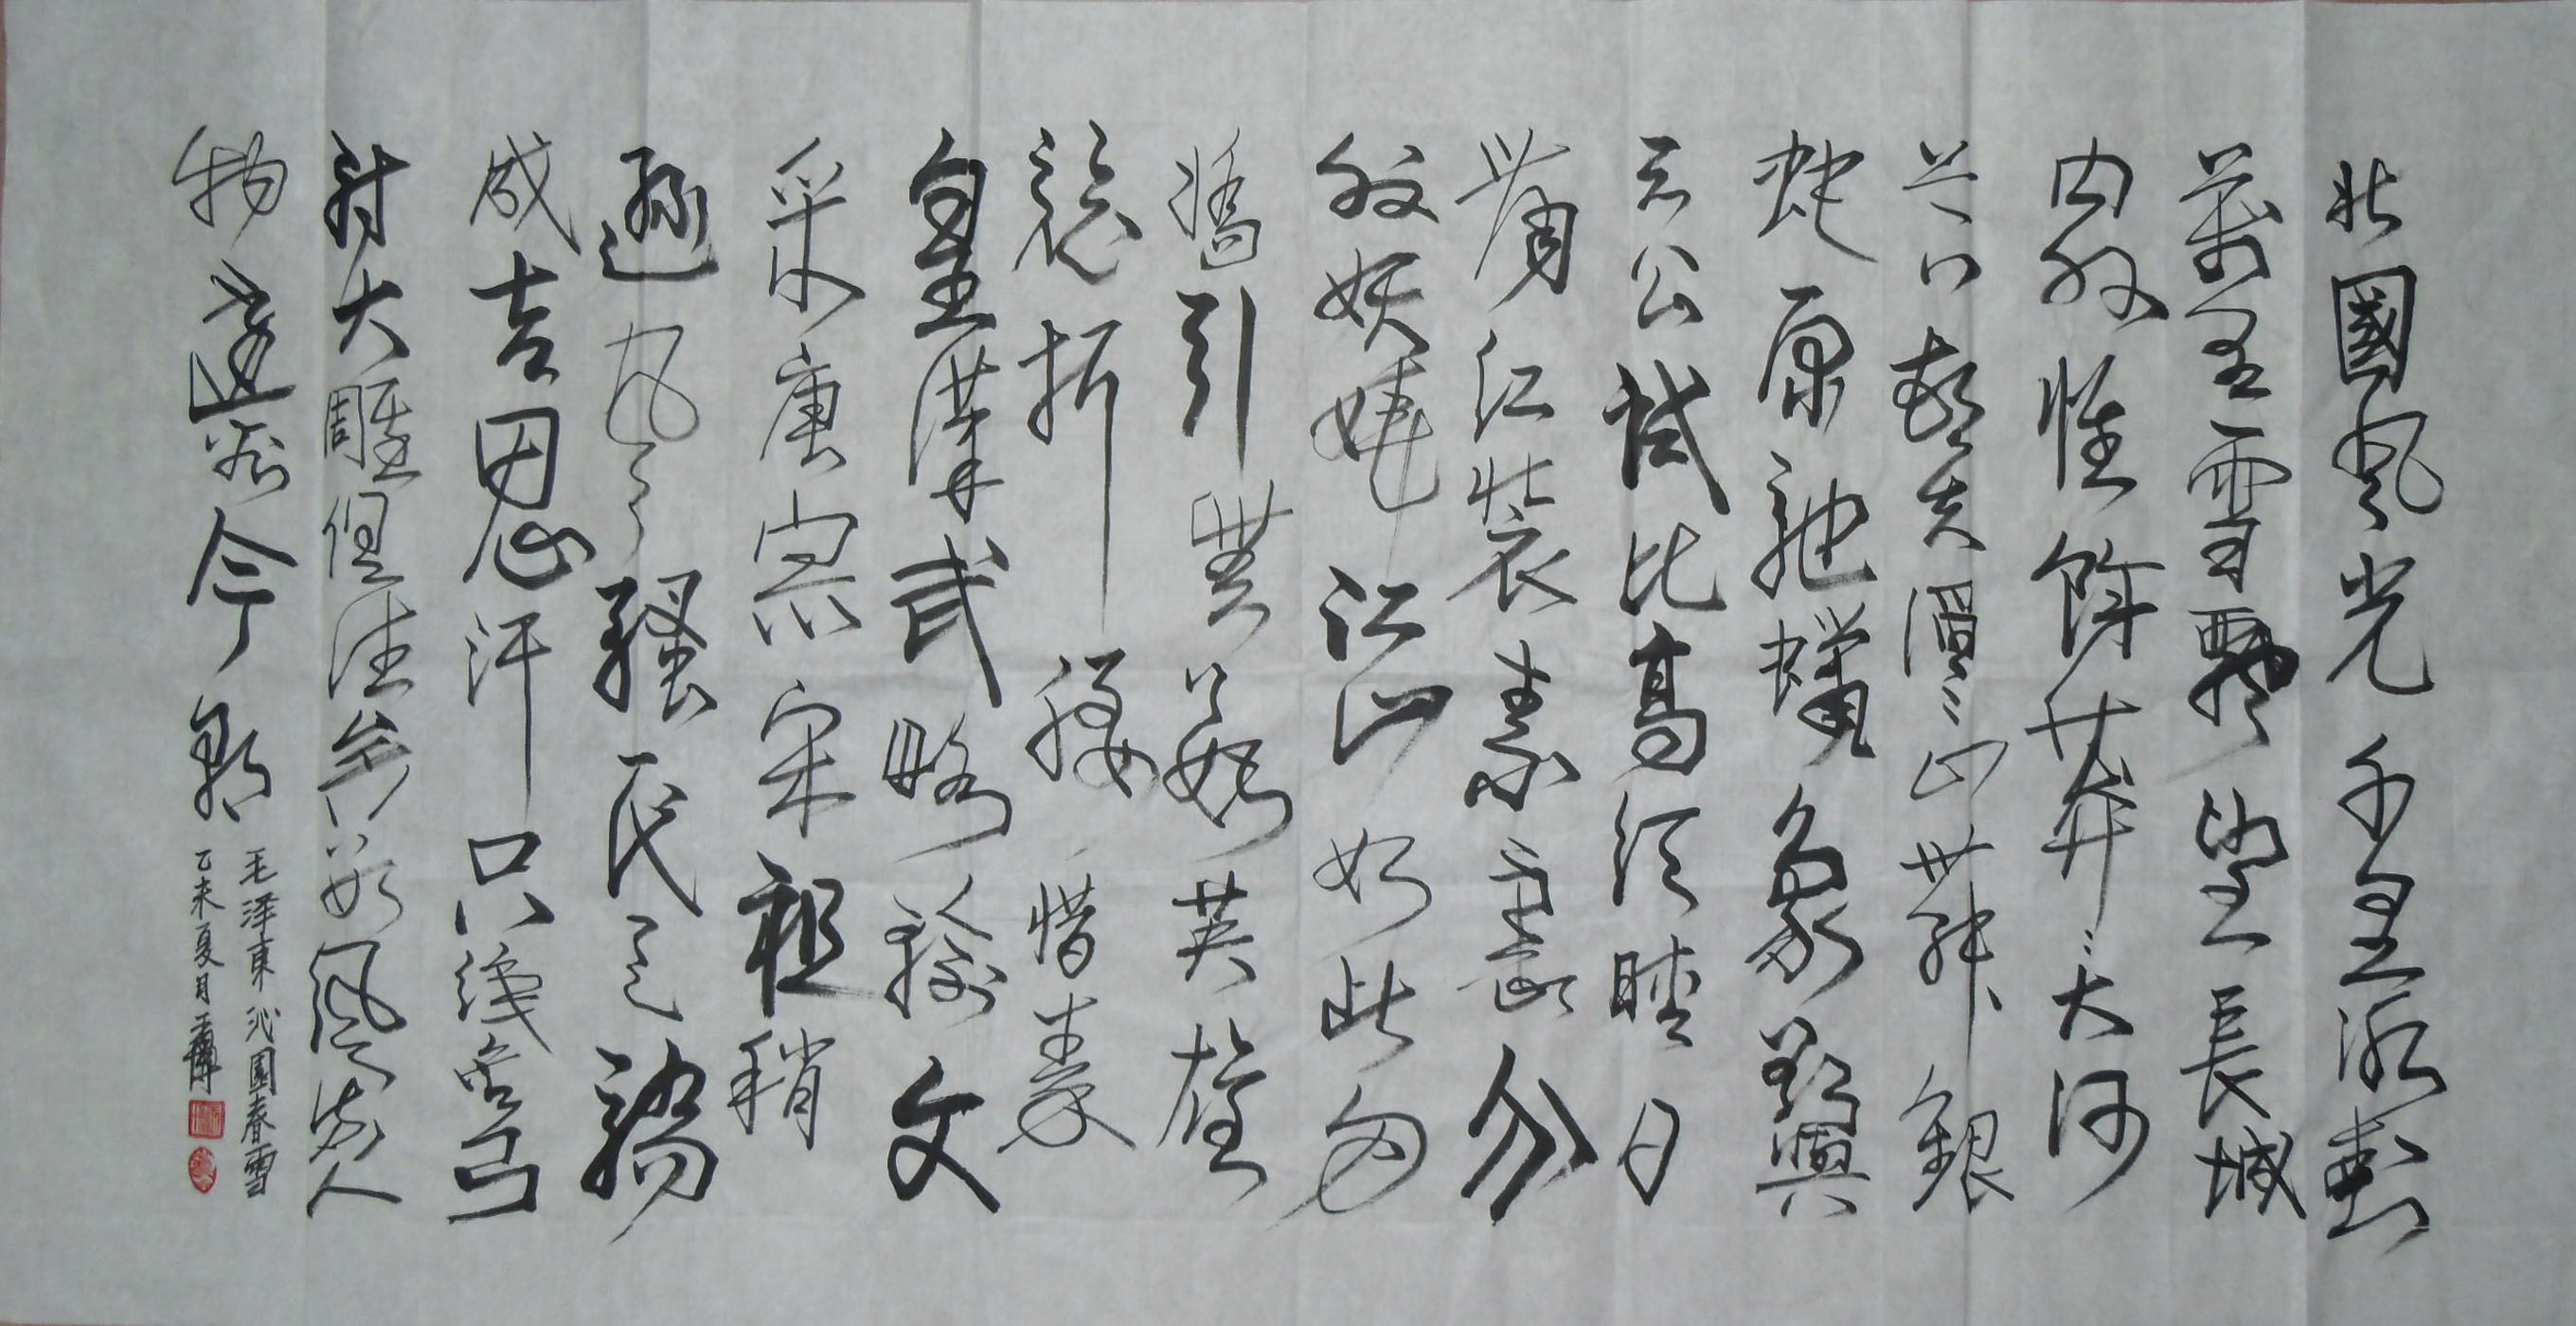 北國風光千里冰封
萬里雪飄望長城
內外惟餘莽莽大河
上下頓失滔滔山舞銀
蛇原馳蠟象欲與
天公試比高須晴日
看紅裝素裹分
外妖嬈江山如此多
嬌引無數英雄
競折腰惜秦
皇漢武略輸文
采唐宗宋祖稍
遜風騷一代天驕
成吉思汗只識彎弓
射大雕俱往矣數風流人
物還看今朝
毛澤東沁園春雪
乙未夏月